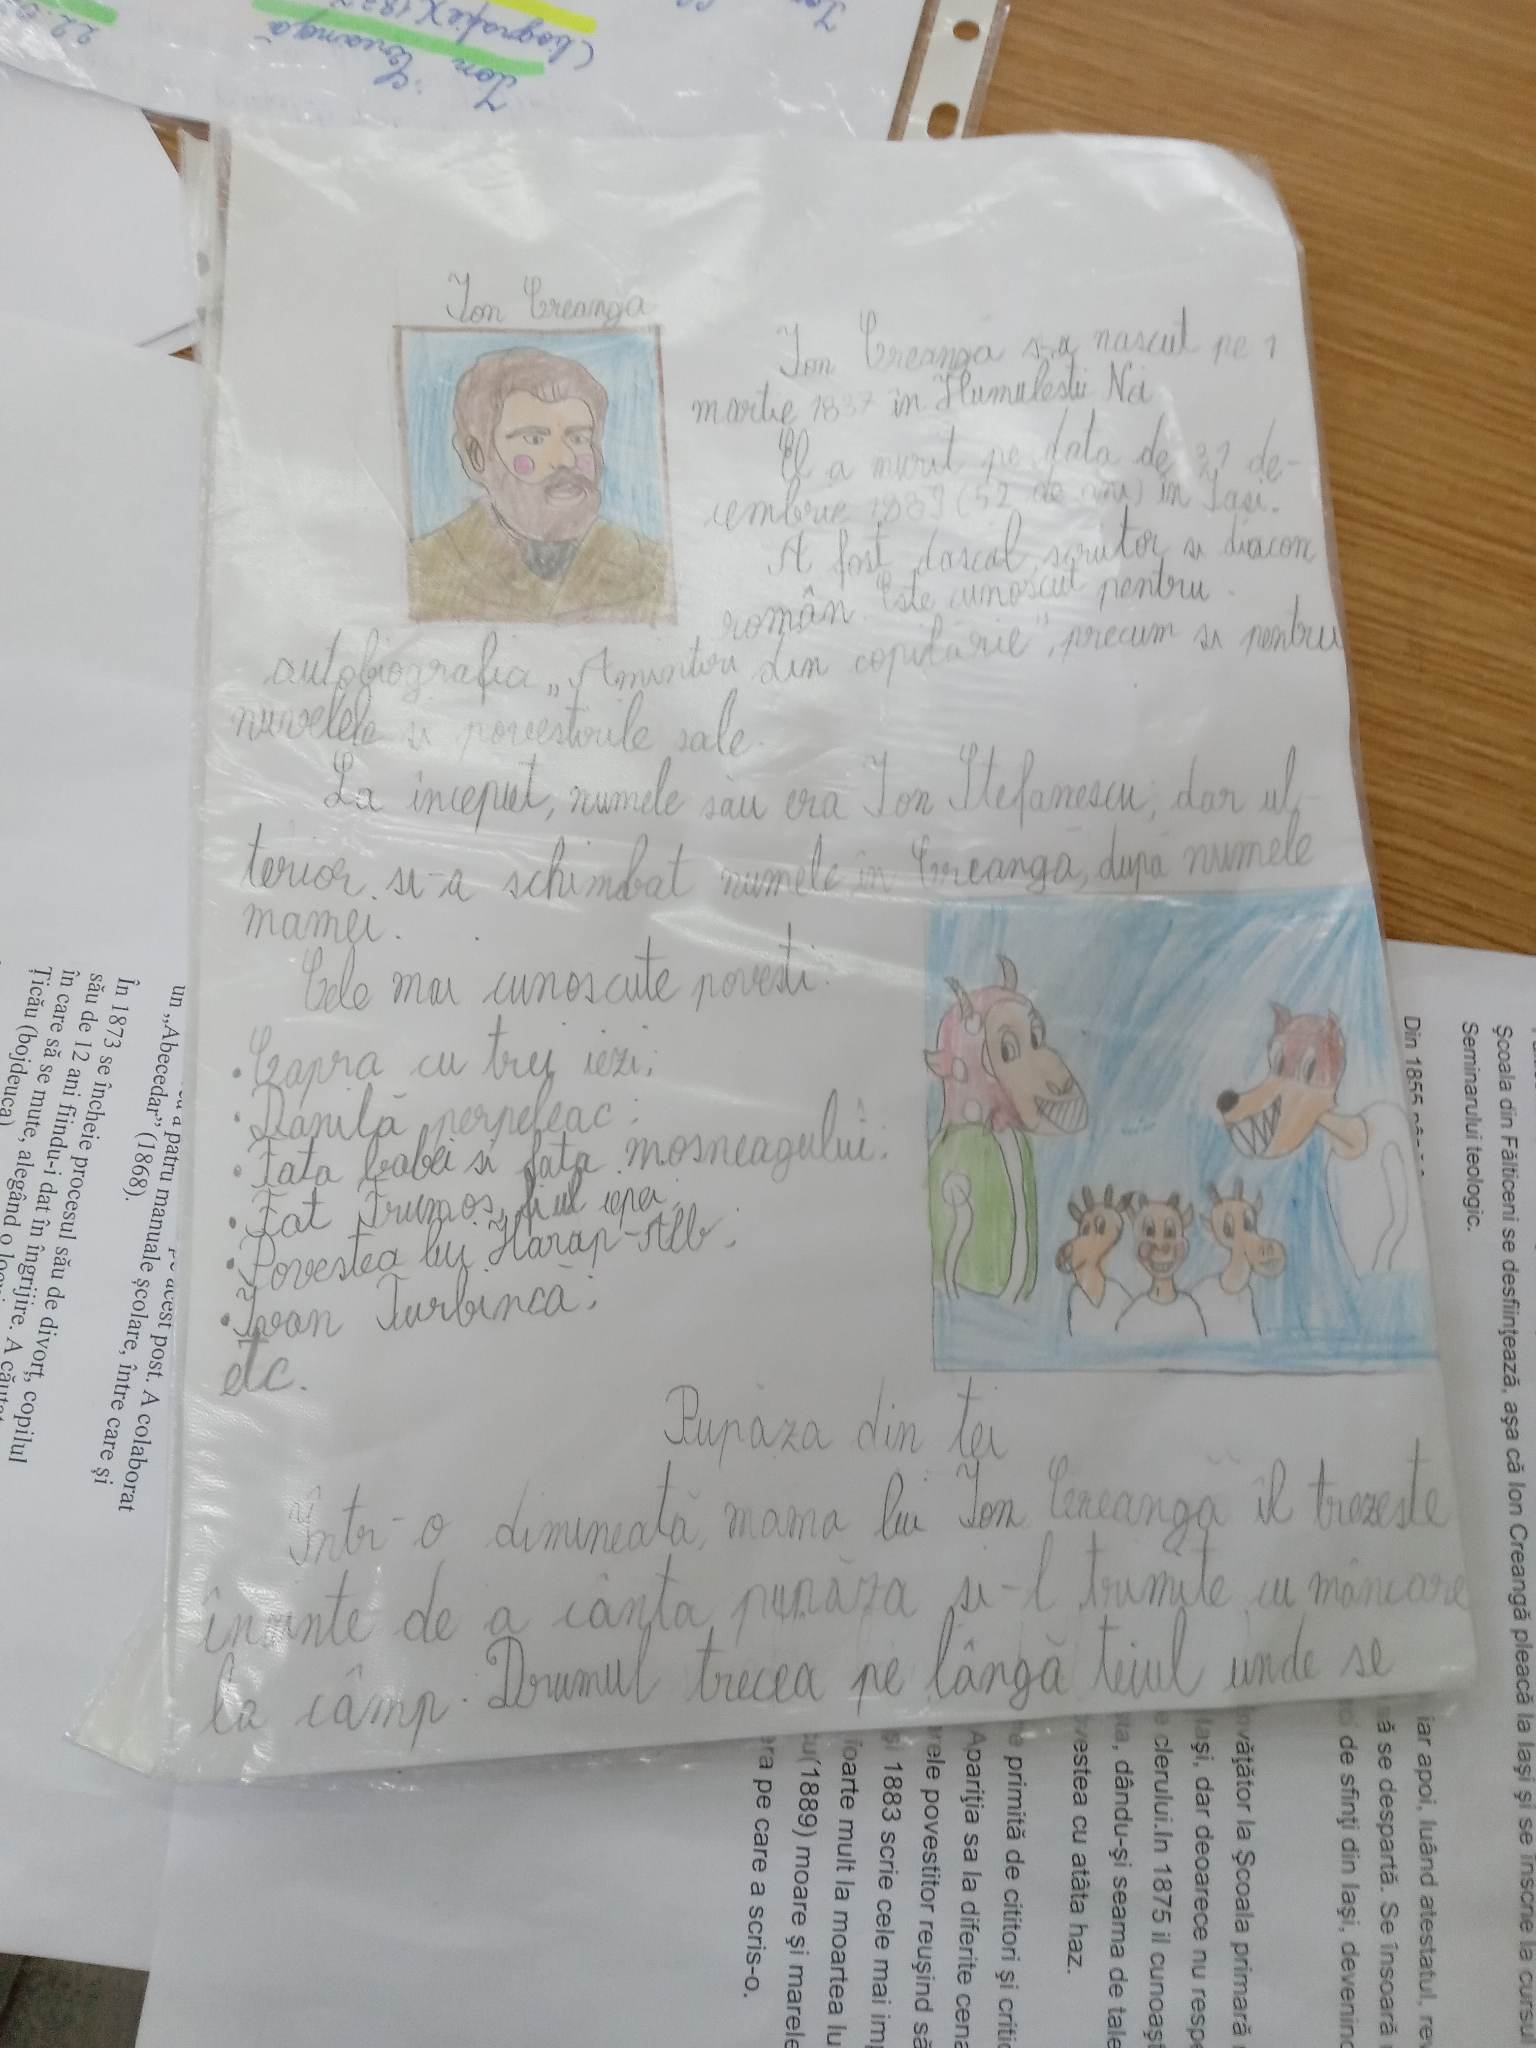 Ion Creangă
Ion Creangă s-a nascut pe 1
martie 1837 în Humulesti
El a murit pe data de 31 de-
cembrie 1889 (52 de ani) în Iasi.
A fost dascal, scriitor si diacon
român. Este cunoscut pentru
autobiografia „Amintiri din copilărie", precum si pentru
nuvelele si povestirile sale.
La început, numele său era Ion Stefanescu, dar ul-
terior si-a schimbat numele în Creangă, după numele
mamei.
Cele mai cunoscute povesti:
• Capra cu trei iezi;
• Danilă perpeleac;
• Fata babei si fata mosneagului;
• Fat Frumos, fiul iepei;
• Povestea lui Harap-Alb;
• Ivan Turbincă;
etc.
Pupăza din tei
Într-o dimineată, mama lui Ion Creangă îl trezeste
înainte de a cânta pupăza si-l trimite cu mâncare
la câmp. Drumul trecea pe lângă teiul unde se
Ion
Creangă
(biografie)
un „Abecedar" (1868).
a patru manuale şcolare, între care şi
acest post. A colaborat
În 1873 se încheie procesul său de divorţ, copilul
său de 12 ani fiindu-i dat în îngrijire. A
în care să se mute, alegând o
Ţicău (bojdeuca)
Şcoala din Fălticeni se desfiinţează, aşa că Ion Creangă pleacă la Iaşi şi se înscrie la cursul
Seminarului teologic.
Din 1855
iar apoi, luând atestatul,
să se despartă. Se însoară
de sfinţi din Iaşi, devenind
învăţător la Şcoala primară
Iaşi, dar deoarece nu
clerului.In 1875 il
dându-şi seama de
cu atâta haz.
primită de cititori şi
Apariţia sa la diferite
povestitor reuşind să
şi 1883 scrie cele mai
foarte mult la moartea
(1889) moare şi marele
pe care a scris-o.